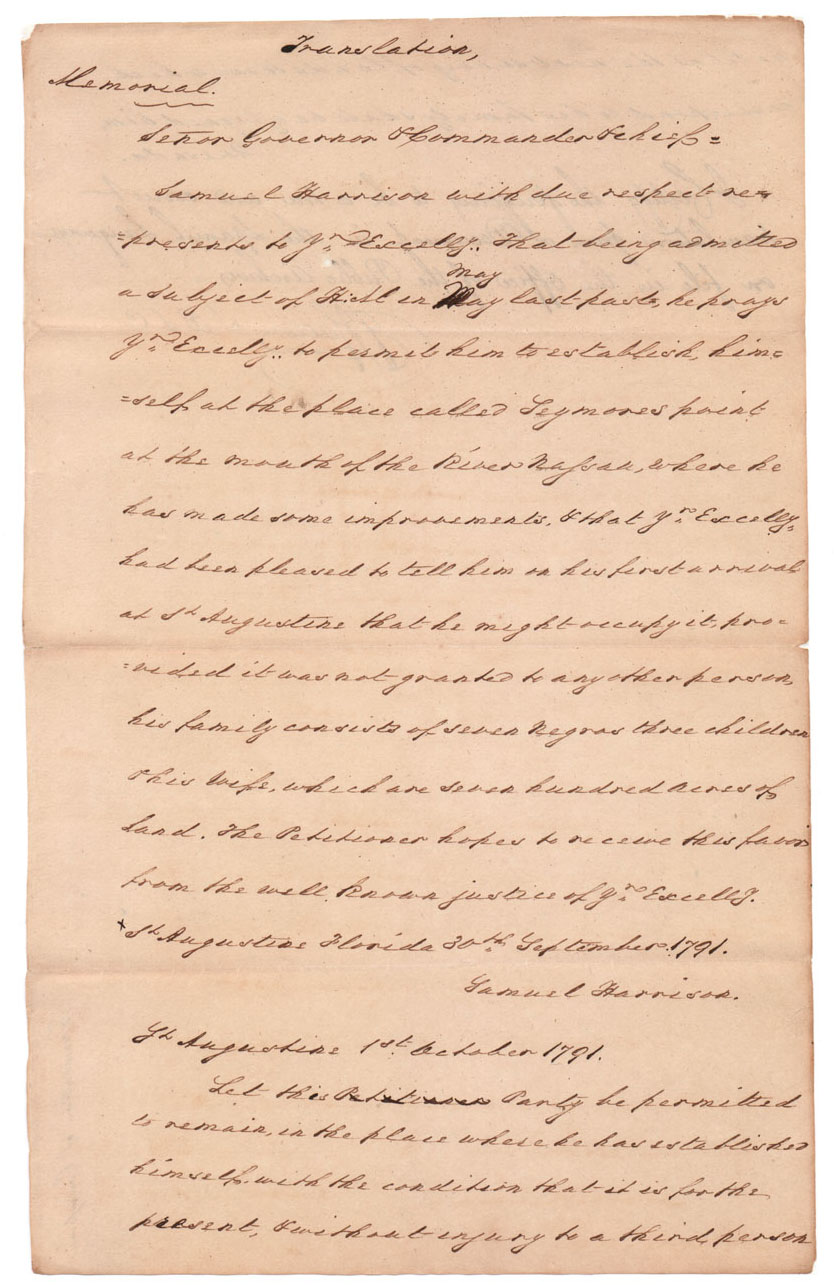 Translation,
Memorial.
Señor Governor & Commander & chief =
Samuel Harrison with due respect re=
=presents to Yr. Excelly. That being admitted
may
a Subject of H:M in May last past, he prays
Yr. Ecelly. to permit him to establish, him=
=self at the place called Seymores point
at the mouth of the River Nassau, where he
has made some improvements, & that Yr. Excelly.
had been pleased to tell him on his first arrival
at St Augustine that he might occupy it, pro=
=vided it was not granted to any other person,
his family consists of seven Negros three children
& his Wife, which are seven hundred Acres of
Land. The Petitioner hopes to receive this favor
from the well known justice of Yr. Excelly.
+ St Augustine Florida 30th September 1791.
Samuel Harrison.
St Augustine 1st October 1791.
Let this Petitioner Party be permitted
to remain, in the place where he has established
himself, with the condition that it is for the
present, & without injury to a third person